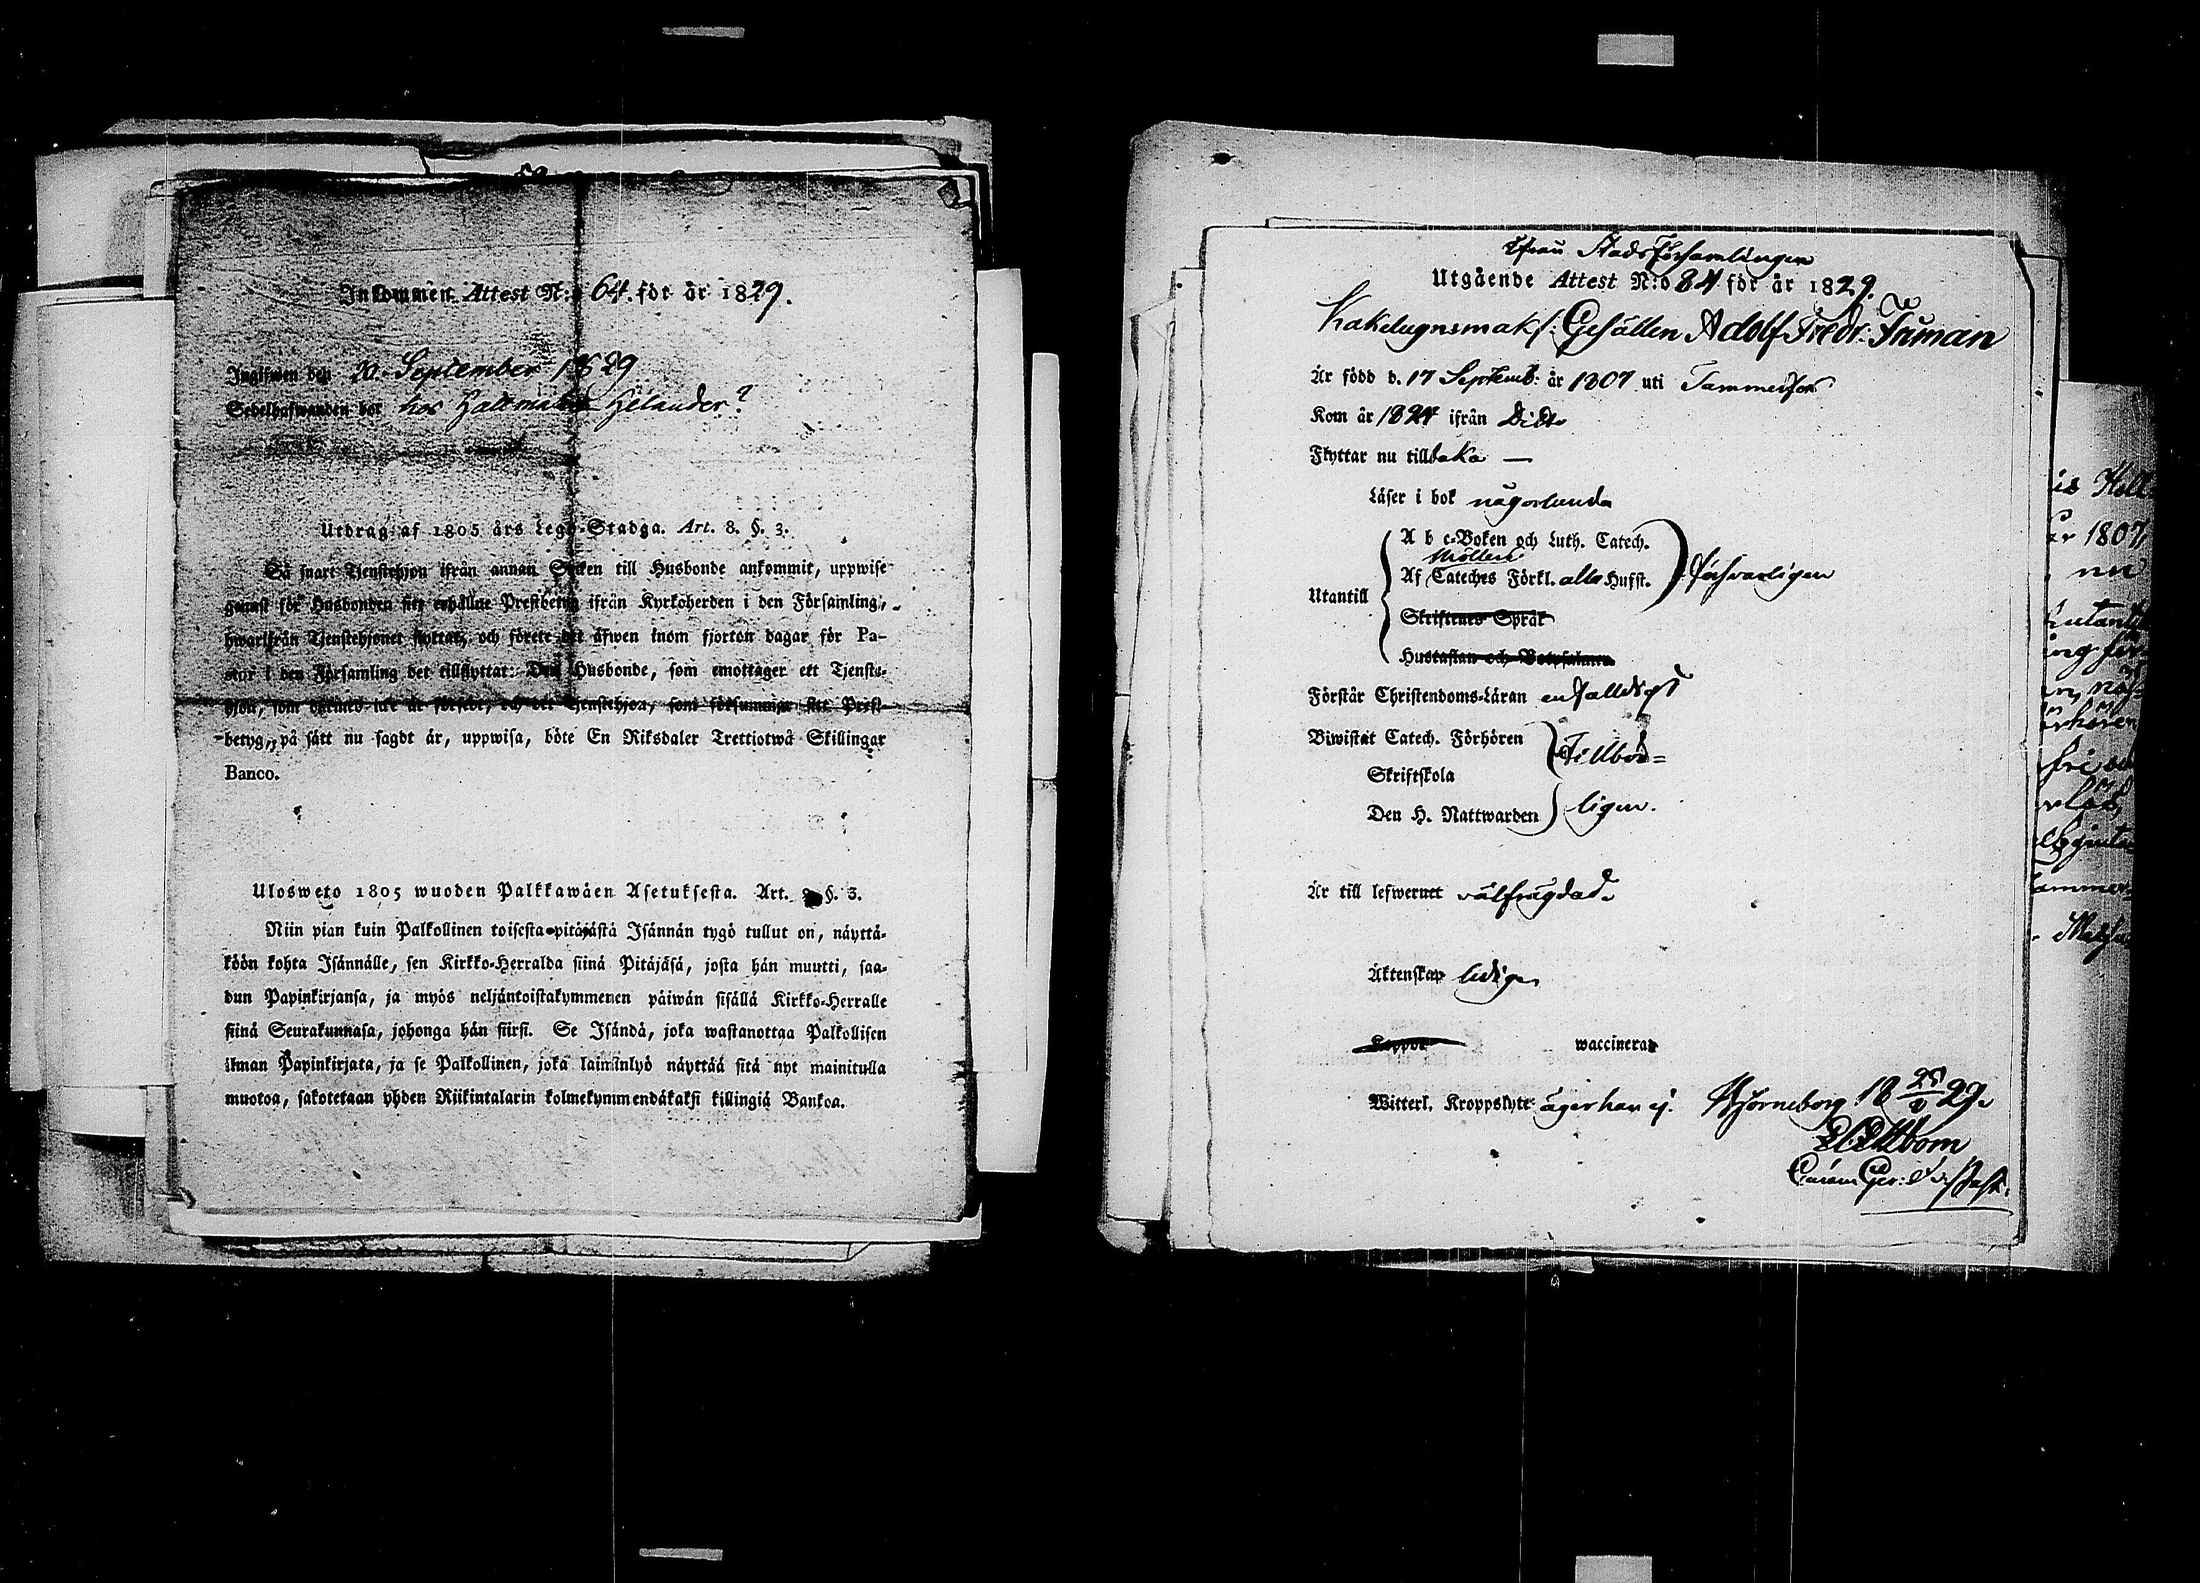 Inkommen Attest N:o 64 för år 1829.
Ingifwen den 20 September 1829
Sedelhafwanden bor hos Hattmakar Helander?
Utdrag af 1805 års Lego-Stadga. Art. 8. §. 3.
Så snart Tjenstehjon ifrån annan Socken till Husbonde ankommit, uppwise
genast för Husbonden sitt erhållne Prestbetyg ifrån Kyrkoherden i den Församling,
hwarifrån Tjenstehjonet flyttat, och förete det äfwen inom fjorton dagar för Pa-
stor i den Församling det tillflyttat: Den Husbonde, som emottager ett Tjenste-
hjon, som dermed icke är försedt, och det Tjenstehjon, som försummar sitt Prest-
betyg, på sätt nu sagdt är, uppwisa, böte En Riksdaler Trettiotwå Skillingar
Banco.
Ulosweto 1805 wuoden Palkkawäen Asetuksesta. Art. 8 §. 3.
Niin pian kuin Palkollinen toisesta pitäjästä Isännän tygö tullut on, näyttä-
köön kohta Isännälle, sen Kirkko-Herralda siinä Pitäjäsä, josta hän muutti, saa-
dun Papinkirjansa, ja myös neljäntoistakymmenen päiwän sisällä Kirkko-Herralle
siinä Seurakunnasa, johonga hän siirsi. Se Isändä, joka wastanottaa Palkollisen
ilman Papinkirjata, ja se Palkollinen, joka laiminlyö näyttää sitä nyt mainitulla
muotoa, sakotetaan yhden Riikintalarin kolmekymmendäkaksi killingiä Bankoa.
ifrån Stadsförsamlingen
Utgående Attest N:o 84 för år 1829.
Kakelugnsmak: Gesällen Adolf Fredr. Iruman
Är född d. 17 Septemb: år 1807 uti Tammerfors
Kom år 1824 ifrån Dito
Flyttar nu tillbaka —
Läser i bok någorlunda
A b c-Boken och Luth. Catech.
Möllers
Af Cateches Förkl. alla Hufst.
Utantill försvarligen
Skriftenes Språk
Hustaflan och Botpsalmen
Förstår Christendoms-Läran enfalldigt
Biwistat Catech. Förhören Tillbör=
Skriftskola
Den H. Nattwarden ligen.
Är till lefwernet välfrägdad.
Äktenskap ledig
Koppor waccinerad
Witterl. Kroppslyte äger han ej. Björneborg 18 29.
is Hell
1807,
nu
utant
ing för
förhören
fri
ammer-